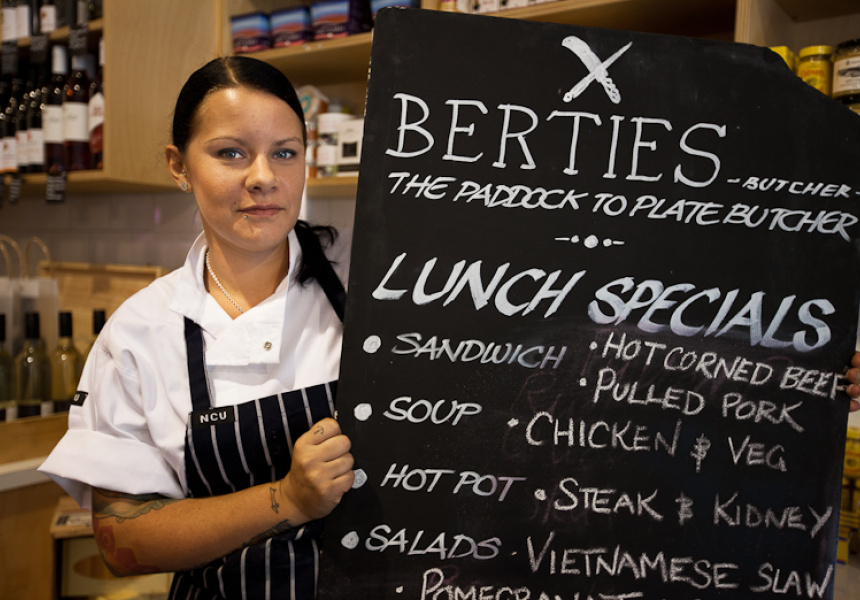 BERTIES
- BUTCHER -
THE PADDOCK TO PLATE BUTCHER
LUNCH SPECIALS
• SANDWICH • HOT CORNED BEEF
• PULLED PORK
• SOUP • CHICKEN & VEG
• HOT POT • STEAK & KIDNEY
• SALADS • VIETNAMESE SLAW
NCU